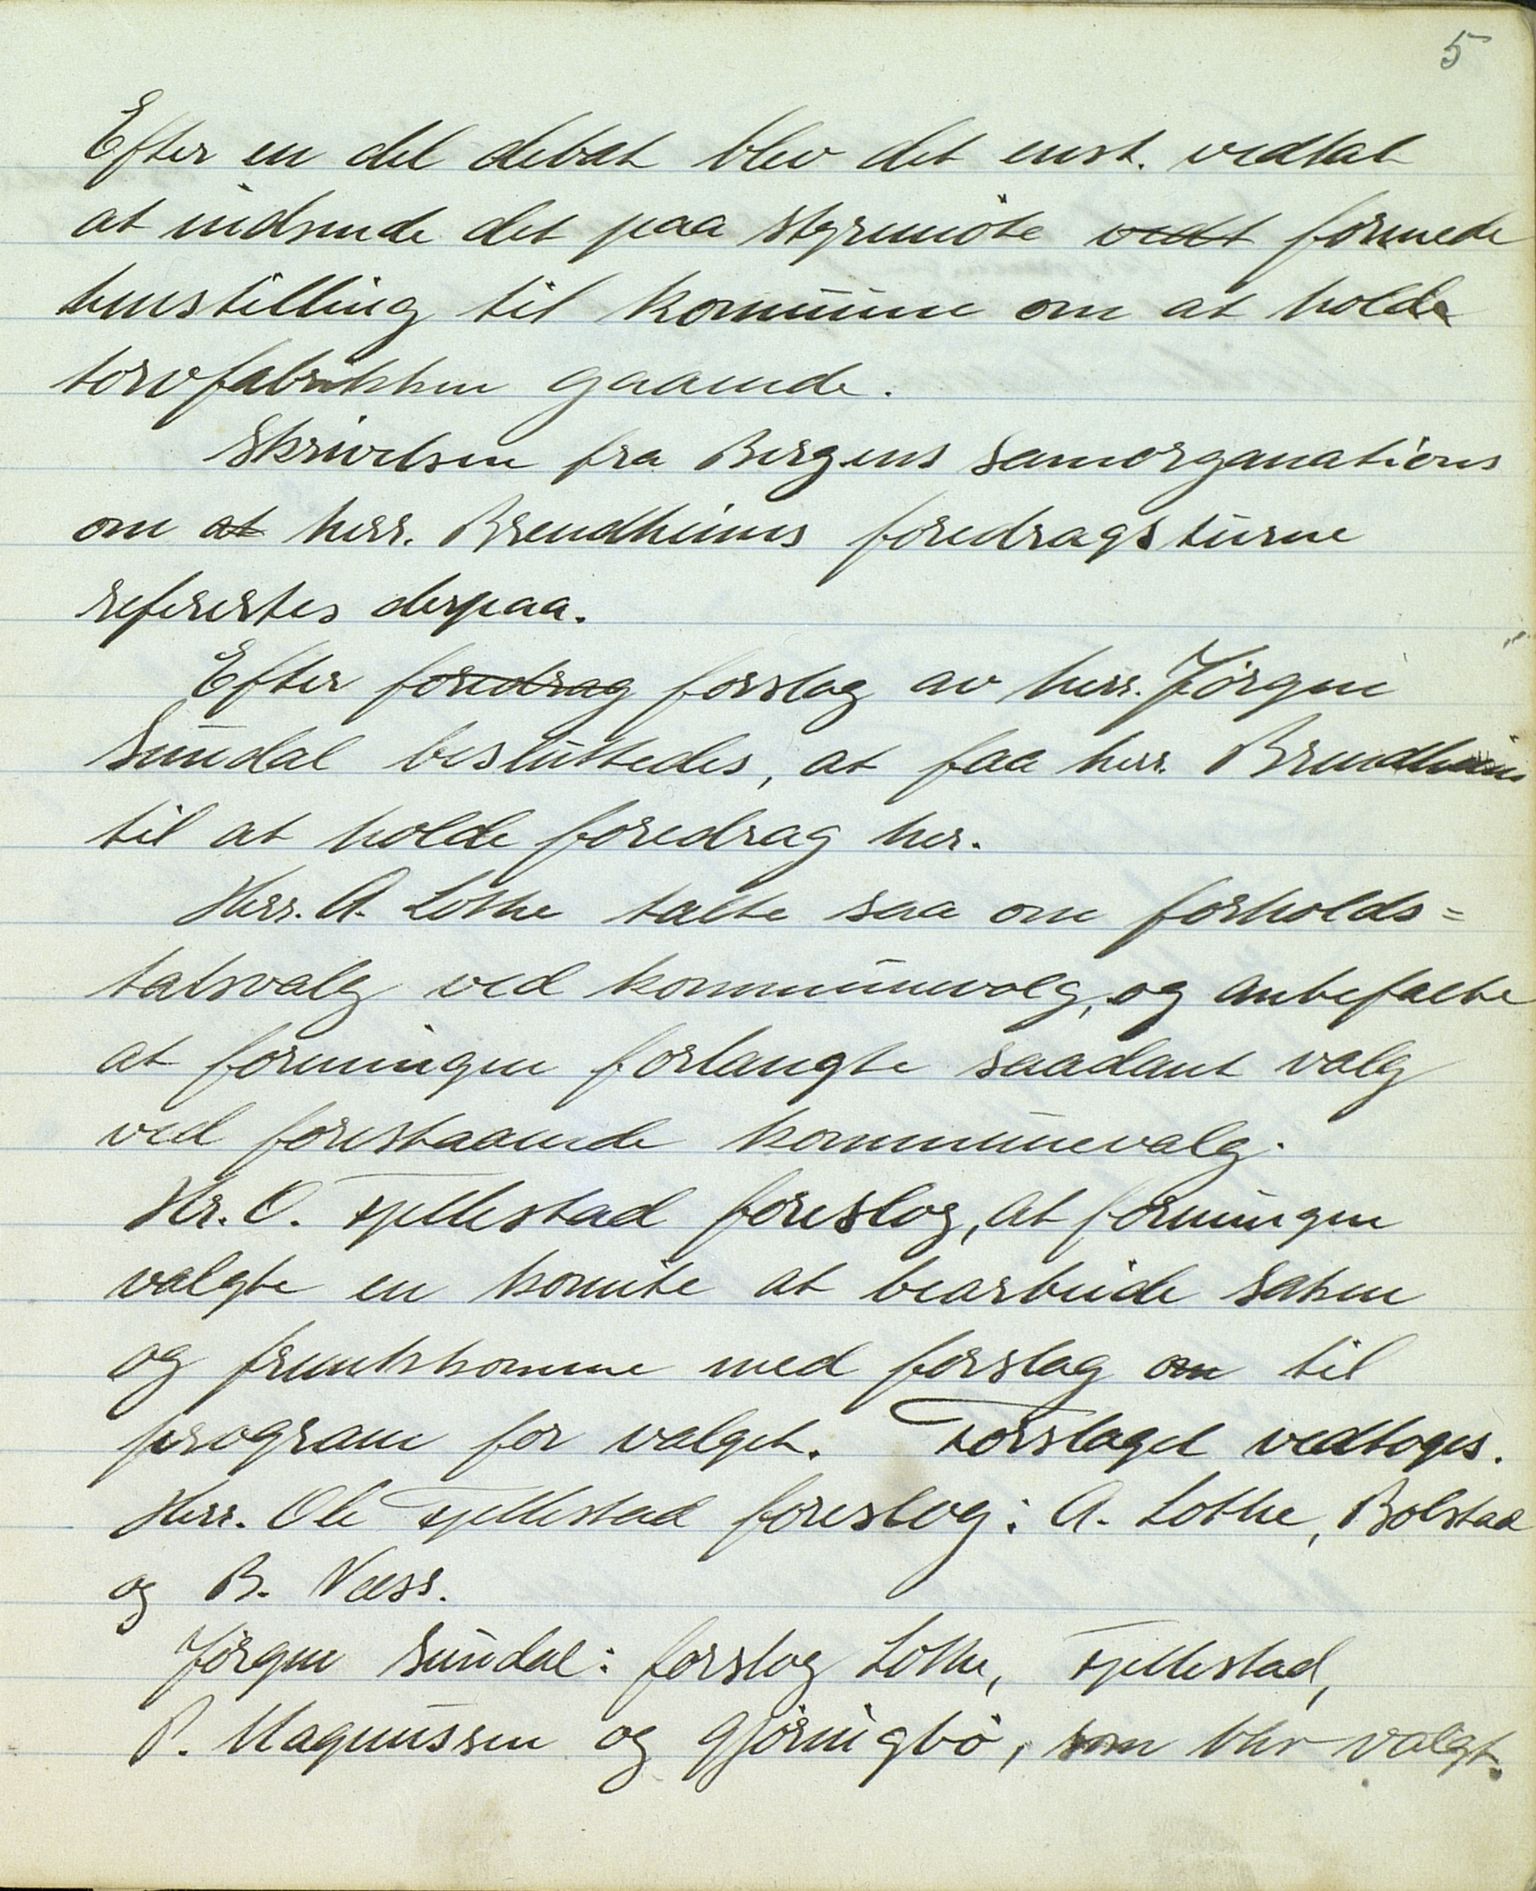 5
Efter en del debat blev det enst. vedtat
at indsende det paa styremöte vedt formede
henstilling til kommune om at holde
torvfabrikken gaaende.
Skrivelsen fra Bergens samorganations
om at herr. Brendheims foredragsturne
referertes derpaa.
Efter foredrag forslag av herr. Jörgen
Sundal besluttedes, at faa herr. Brendheim
til at holde foredrag her.
Herr. A. Lothe talte saa om forholds=
talsvalg ved kommunevalg, og anbefalte
at foreningen forlangte saadant valg
ved forestaaende kommunevalg.
Hr. O. Fjellestad foreslog, at foreningen
valgte en komite at bearbeide saken
og fremkomme med forslag om til
program for valget. Forslaget vedtoges.
Herr. Ole Fjellestad foreslog: A. Lothe, Bolstad
og B. Næss.
Jörgen Sundal: forslog Lothe, Fjellestad,
P. Magnussen og Gjöringbö, som blev valgt.